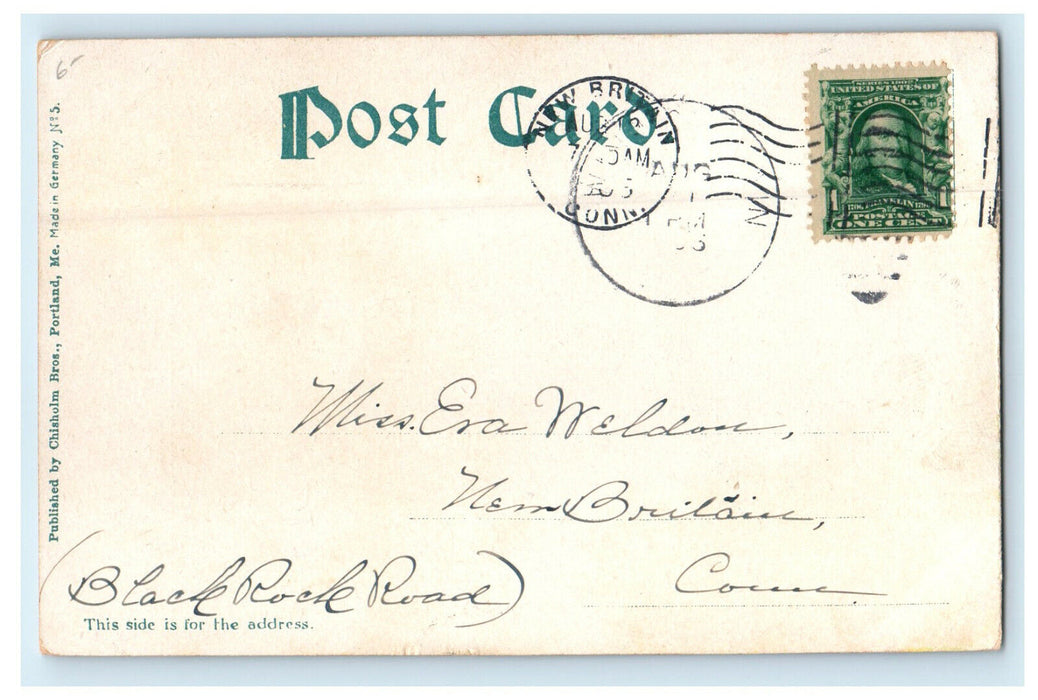 Post Card
NEW BRITAIN
AUG
AM
CONN.
AUG
SERIES 1902
UNITED STATES OF
AMERICA
1 1
POSTAGE
ONE CENT
Published by Chisholm Bros., Portland, Me. Made in Germany No. 5.
Miss. Eva Weldon,
New Britain,
Conn.
(Black Rock Road)
This side is for the address.